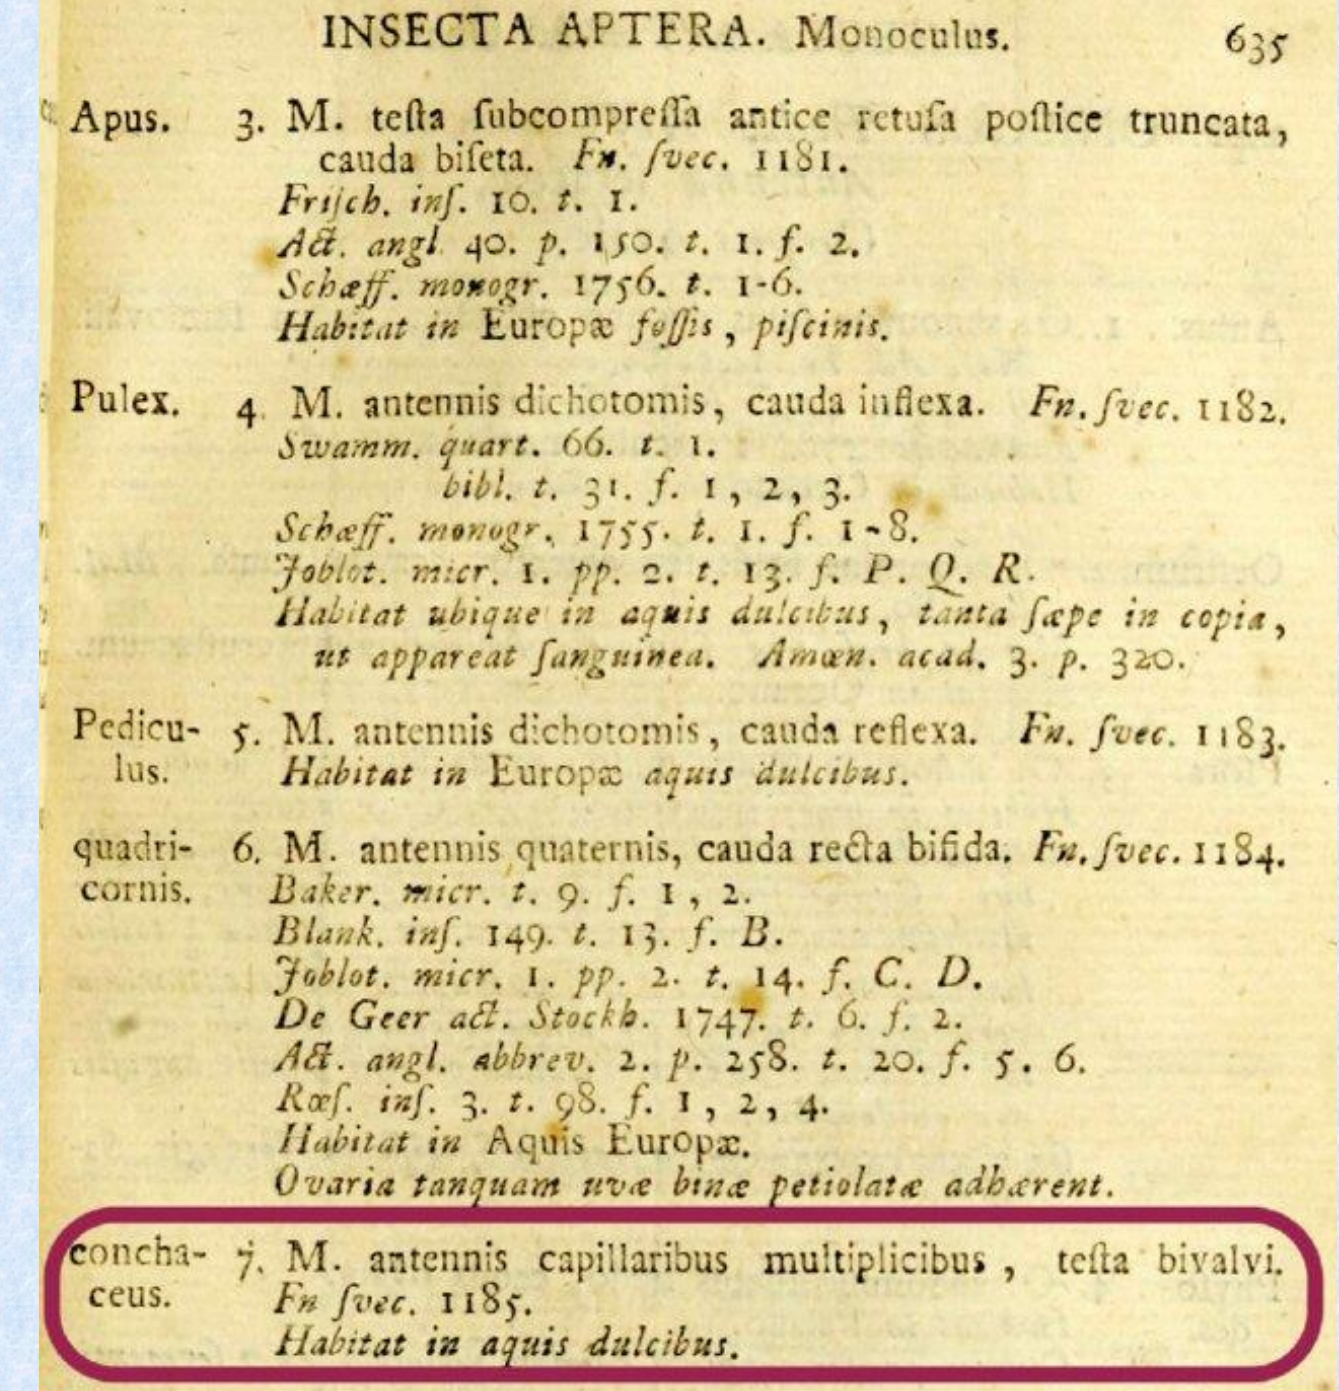 INSECTA APTERA. Monoculus. 635
Apus. 3. M. teſta ſubcompreſſa antice retuſa poſtice truncata,
cauda biſeta. Fn. ſvec. 1181.
Friſch. inſ. 10. t. 1.
Act. angl 40. p. 150. t. 1. f. 2.
Schæff. monogr. 1756. t. 1-6.
Habitat in Europæ foſſis, piſcinis.
Pulex. 4. M. antennis dichotomis, cauda inflexa. Fn. ſvec. 1182.
Swamm. quart. 66. t. 1.
bibl. t. 31. f. 1, 2, 3.
Schæff. monogr. 1755. t. 1. f. 1-8.
Joblot. micr. 1. pp. 2. t. 13. f. P. Q. R.
Habitat ubique in aquis dulcibus, tanta ſæpe in copia,
ut appareat ſanguinea. Amœn. acad. 3. p. 320.
Pedicu- 5. M. antennis dichotomis, cauda reflexa. Fn. ſvec. 1183.
lus. Habitat in Europæ aquis dulcibus.
quadri- 6. M. antennis quaternis, cauda recta bifida. Fn. ſvec. 1184.
cornis. Baker. micr. t. 9. f. 1, 2.
Blank. inſ. 149. t. 13. f. B.
Joblot. micr. 1. pp. 2. t. 14. f. C. D.
De Geer act. Stockh. 1747. t. 6. f. 2.
Act. angl. abbrev. 2. p. 258. t. 20. f. 5. 6.
Rœſ. inſ. 3. t. 98. f. 1, 2, 4.
Habitat in Aquis Europæ.
Ovaria tanquam uvæ binæ petiolatæ adhærent.
concha- 7. M. antennis capillaribus multiplicibus, teſta bivalvi.
ceus. Fn ſvec. 1185.
Habitat in aquis dulcibus.